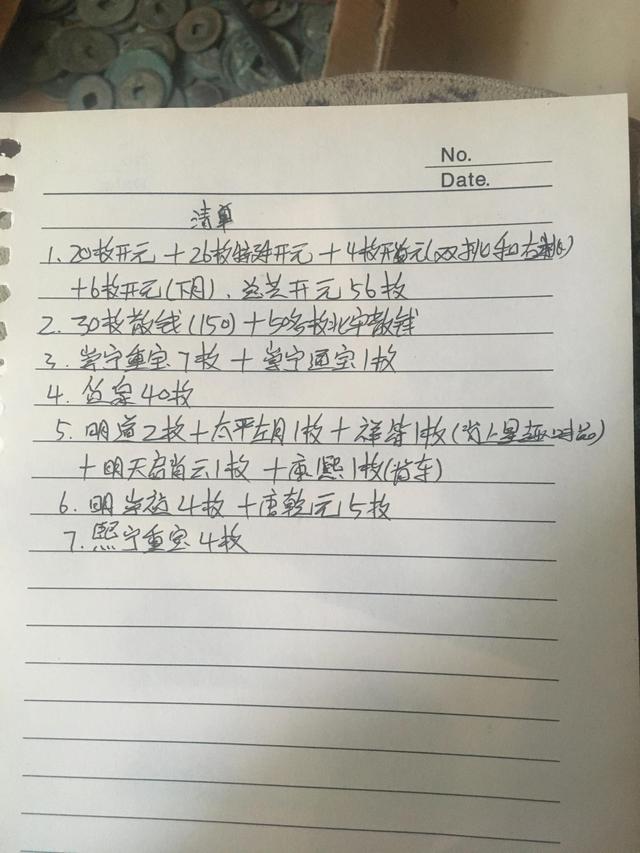 No.
Date.
清单
1. 20枚开元 + 26枚特殊开元 + 4枚开元(双挑和右挑)
+6枚开元(下月)、总共开元56枚
2. 30枚散钱(150) + 50多枚北宋散钱
3. 崇宁重宝7枚 + 崇宁通宝1枚
4. 40枚
5. 明道2枚+太平左月1枚+祥符1枚(背上星
+明天启背云1枚 +康熙1枚(背东)
6. 明 4枚 +唐乾元5枚
7. 熙宁重宝4枚